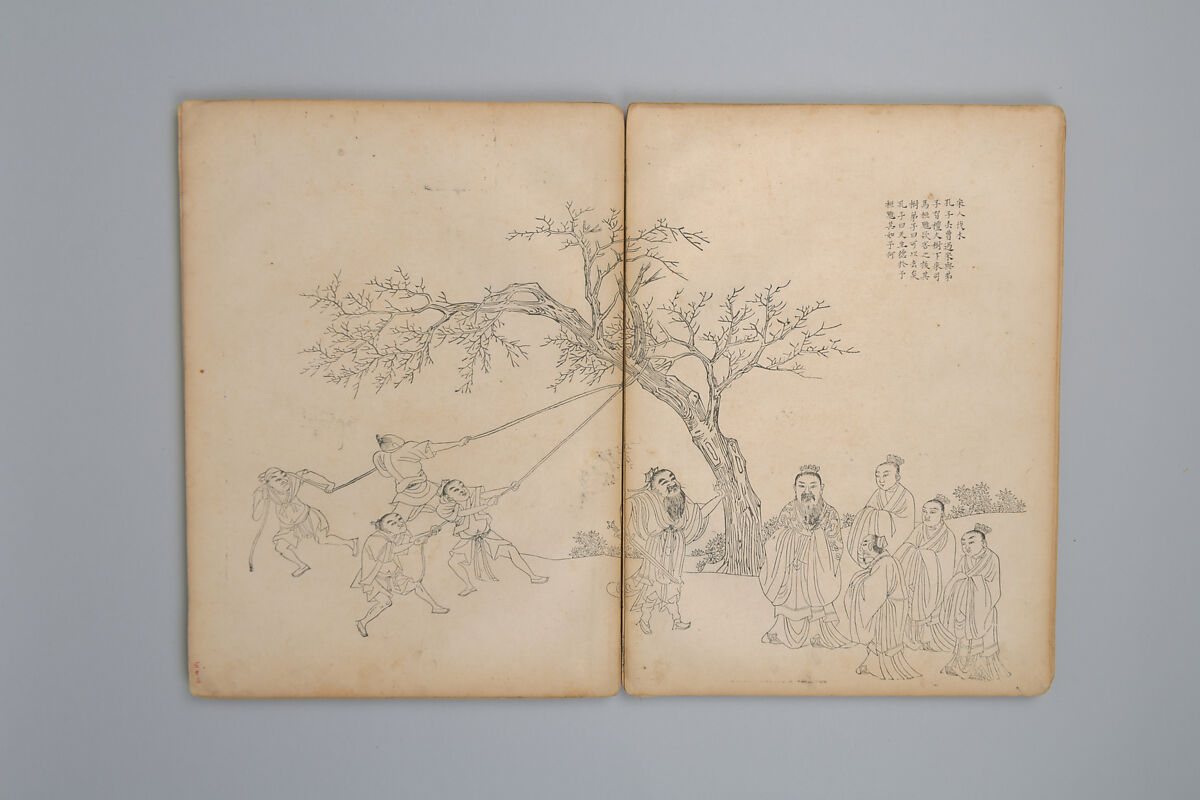 宋人伐木
孔子去曹過宋與弟
子習禮大樹下宋司
馬桓魋欲害之拔其
樹弟子曰可以去矣
孔子曰天生德於予
桓魋其如予何